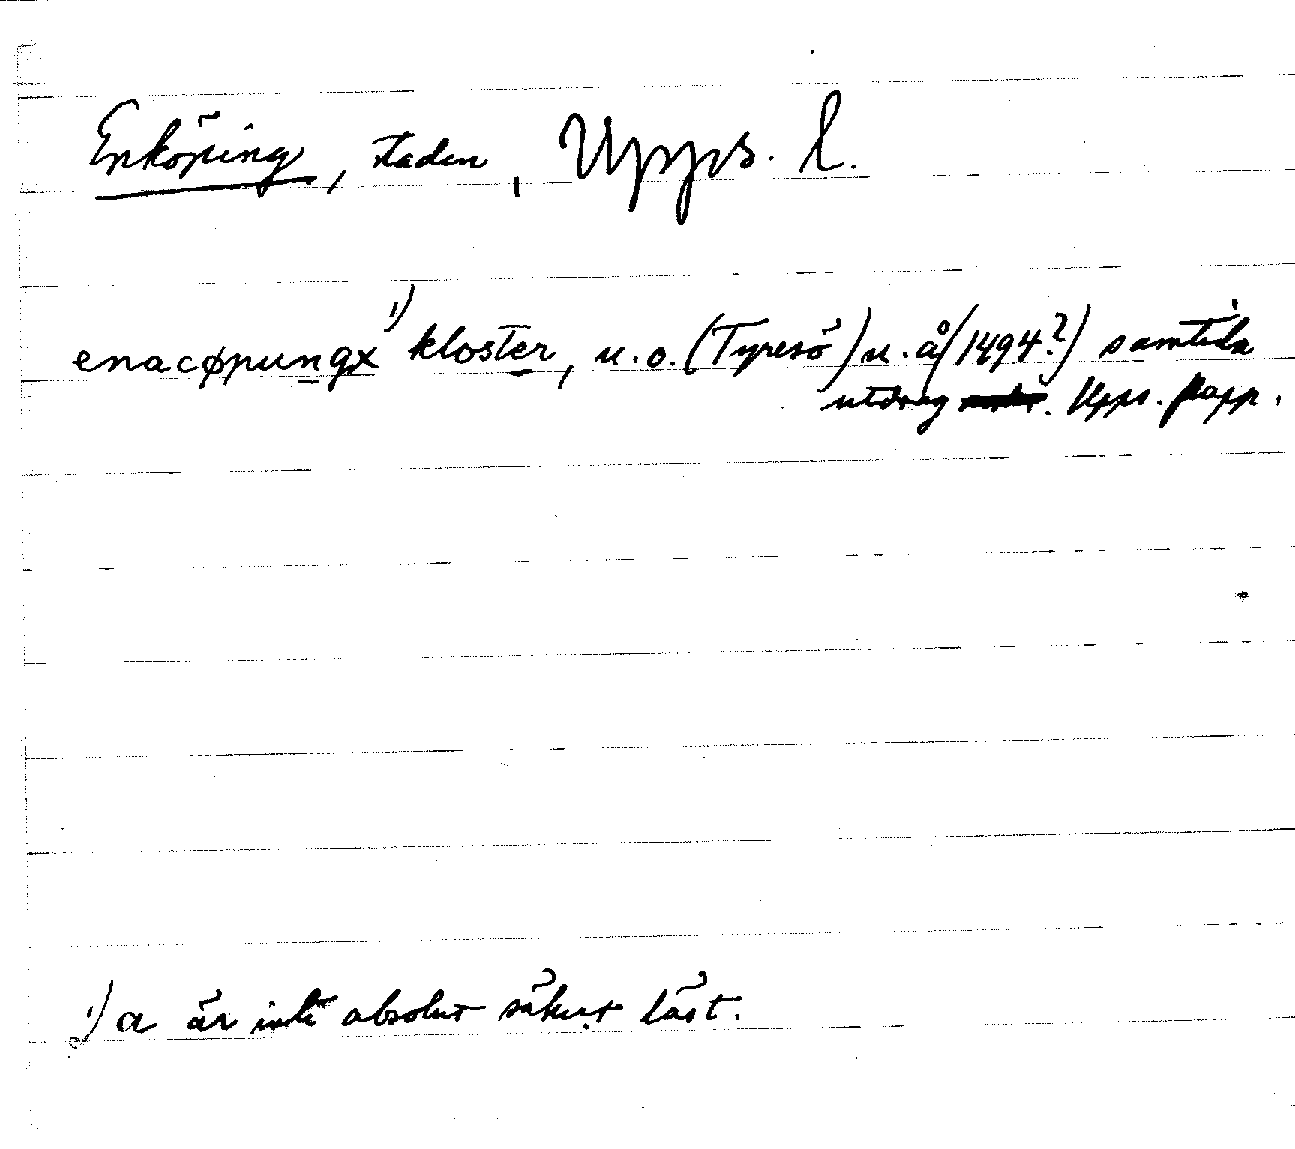 Enköping, staden, Upps. l.
enacøpungx ¹) kloster, u.o. (Tyresö) u.å (1494?) samtida
utdrag Upps. papp.
¹) a är inte absolut säkert läst.